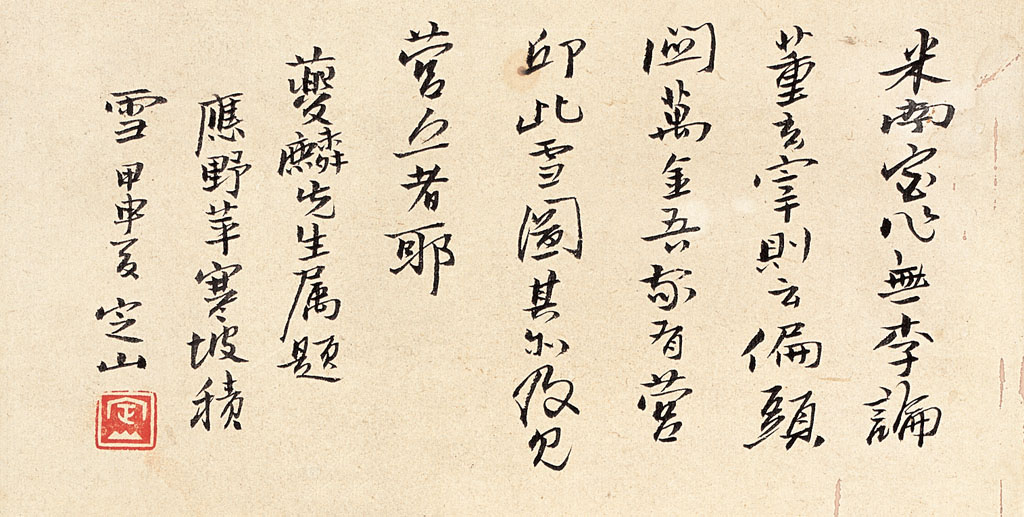 米南宮作無李論
董玄宰則云偏頭
關萬金吾家有營
邱此雪圖其不及見
營丘者耶
夔麟先生属題
應野苹寒坡積
雪 甲申夏 定山
定山